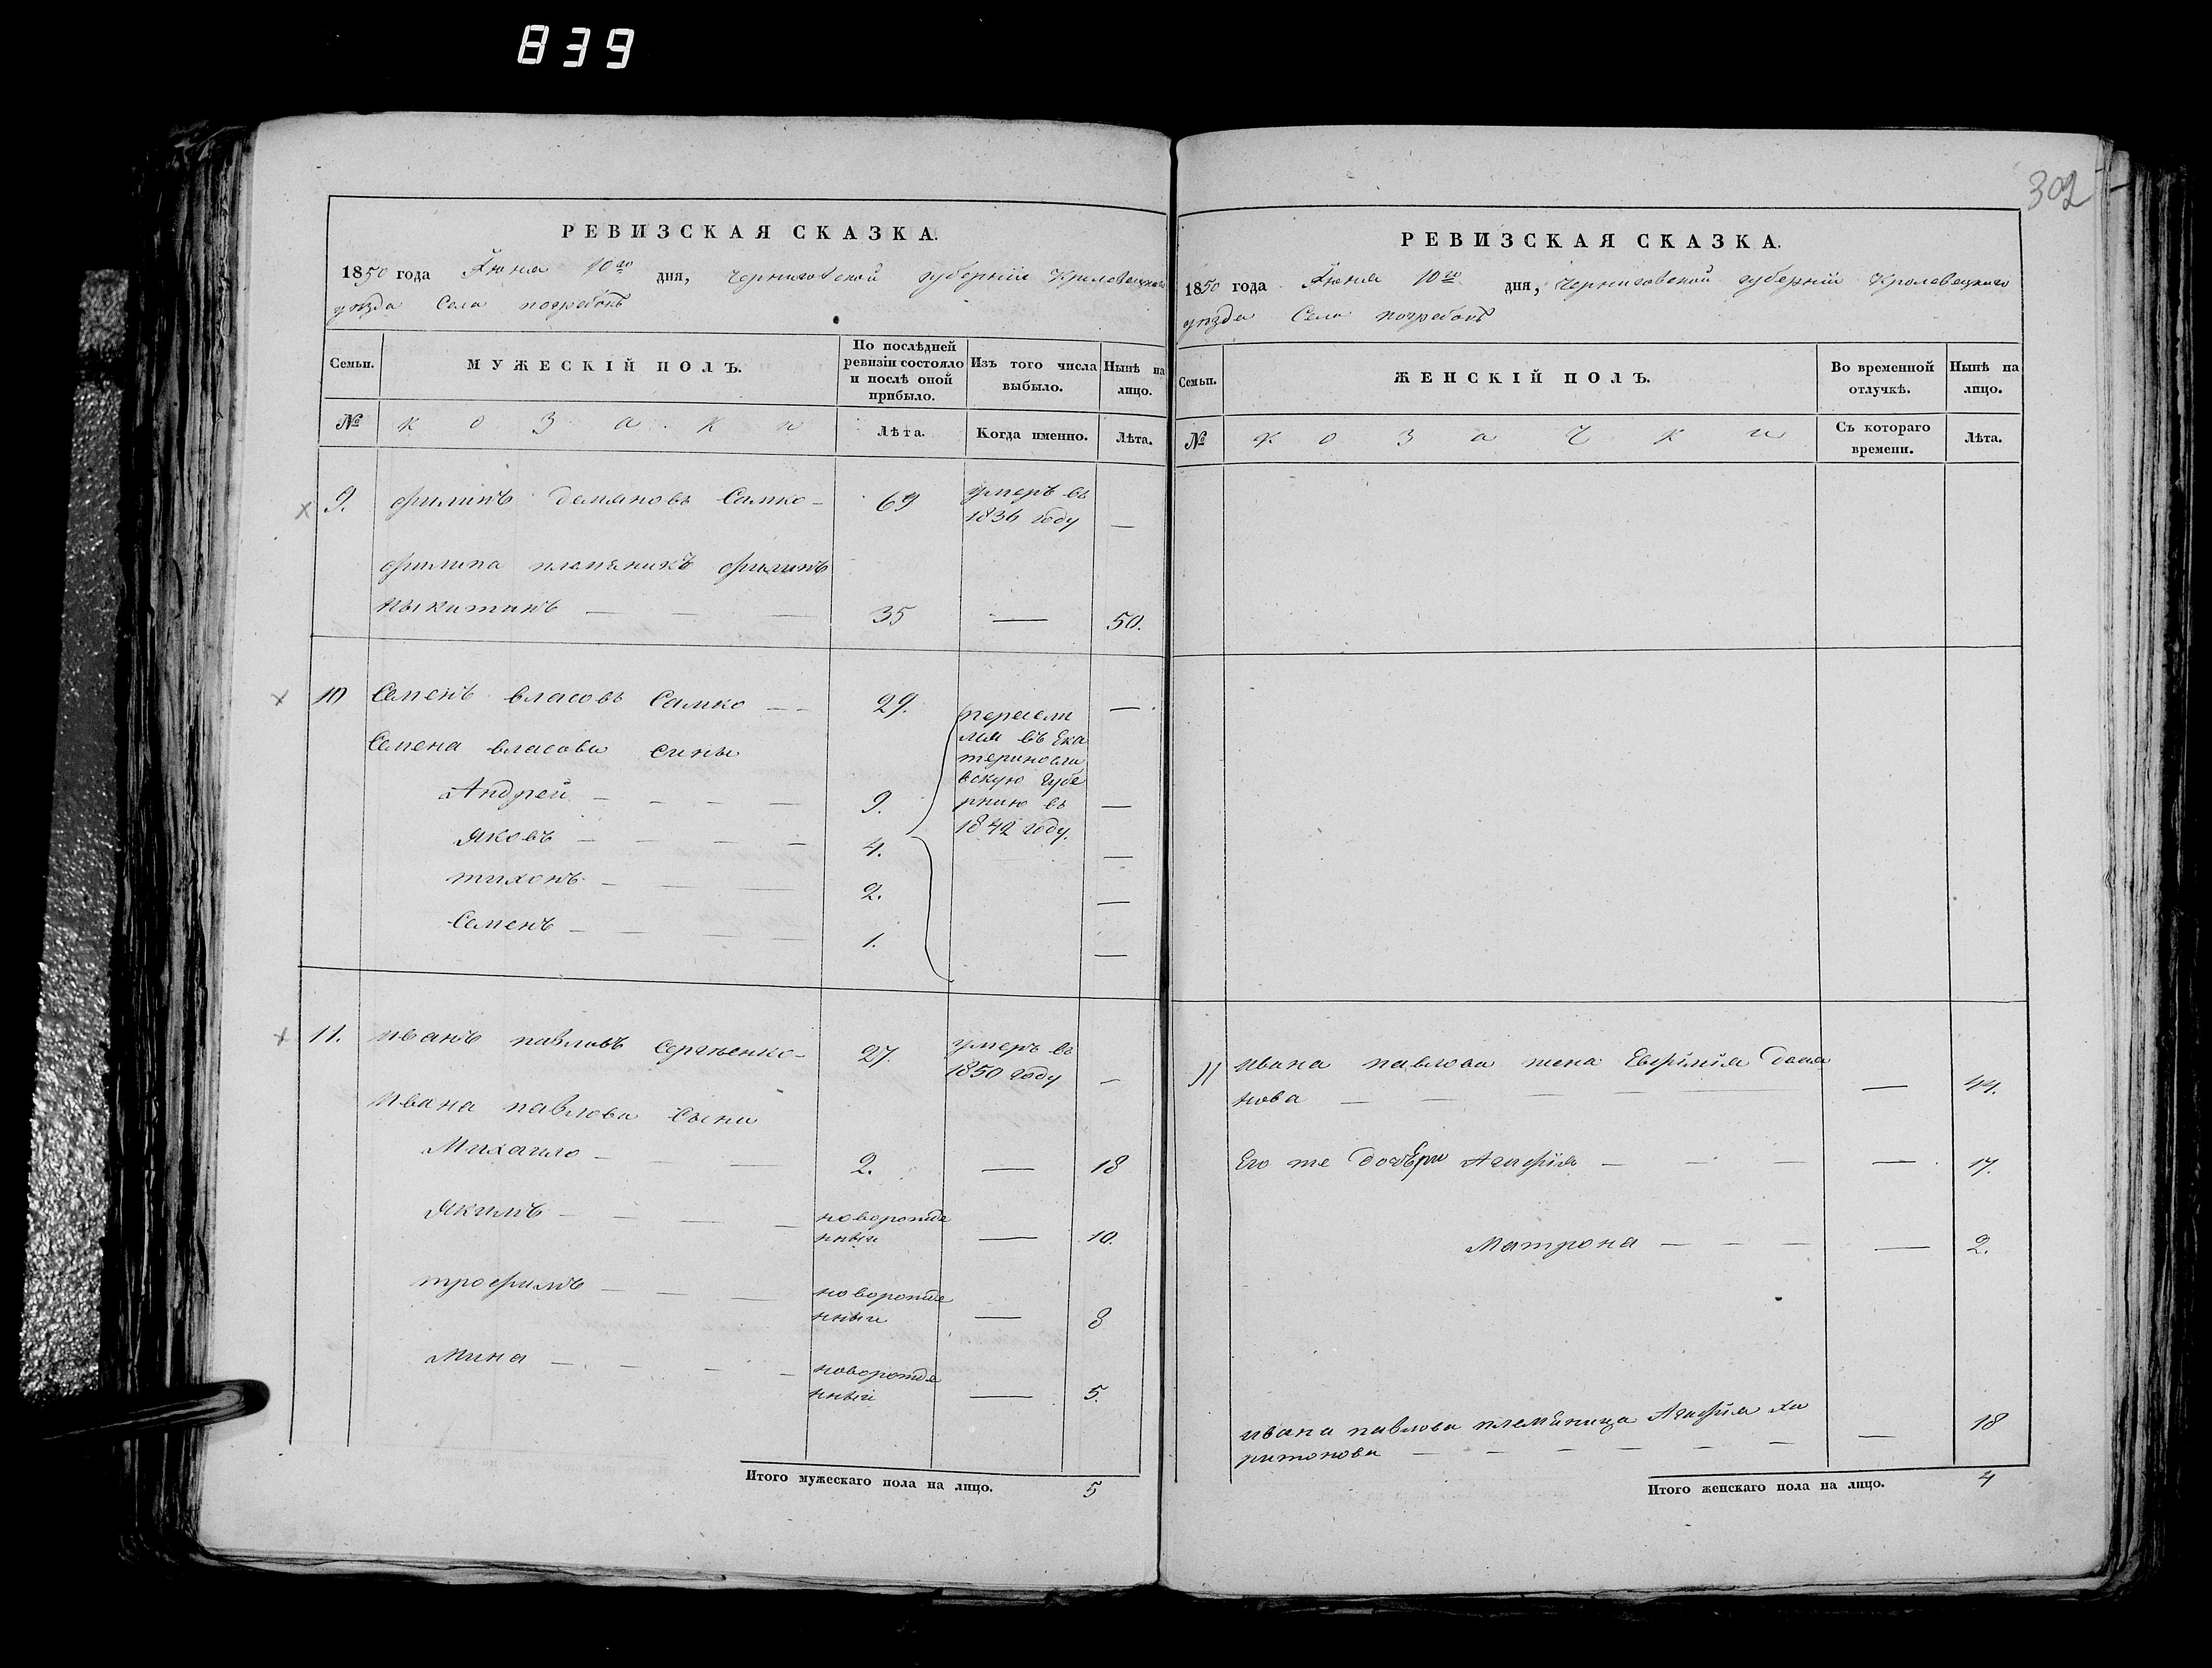 839
302
РЕВИЗСКАЯ СКАЗКА.
1850 года Іюня 10го дня, Черниговской губерніи Кролевецкаго
уѣзда Села погребокъ
Семьи. МУЖЕСКІЙ ПОЛЪ. По послѣдней ревизіи состояло и послѣ оной прибыло. Изъ того числа выбыло. Нынѣ на лицо.
№ козаки Лѣта. Когда именно. Лѣта.
9. филипъ демяновъ Самко - 69 умеръ въ
1836 году —
филипа племяникъ филипъ
Ныкитинъ — — — 35 — 50.
10 Семенъ власовъ Самко — — 29. —
пересели
лися въ Ека
теринослa
вскую губе
рнию въ
1842 году.
Семена власова сины
Андрей — — — — 9. —
Яковъ — — — — 4. —
тихонъ — — — 2. —
Семенъ — — — — 1. —
11. иванъ павловъ Сергѣенко - 27. умеръ въ
1850 году —
Ивана павлова Сыни
Михаило — — 2. — 18
Якимъ — — — — новорожде
нный — 10.
трофимъ — — — новорожде
нный — 8
Мина — — — — новорожде
нный — 5.
Итого мужескаго пола на лицо. 5
РЕВИЗСКАЯ СКАЗКА.
1850 года Іюня 10го дня, Черниговской губерніи Кролевецкаго
уѣзда Села погребокъ
Семьи. ЖЕНСКІЙ ПОЛЪ. Во временной отлучкѣ. Нынѣ на лицо.
№ козачки Съ котораго времени. Лѣта.
11 ивана павлова жена Евфимія
нова — — — — — 44.
Его же дочери Агафія — — — — 17.
Матрона — — — — 2.
ивана павлова племѣница Агафія ха
ритонова — — — — — — — 18
Итого женскаго пола на лицо. 4